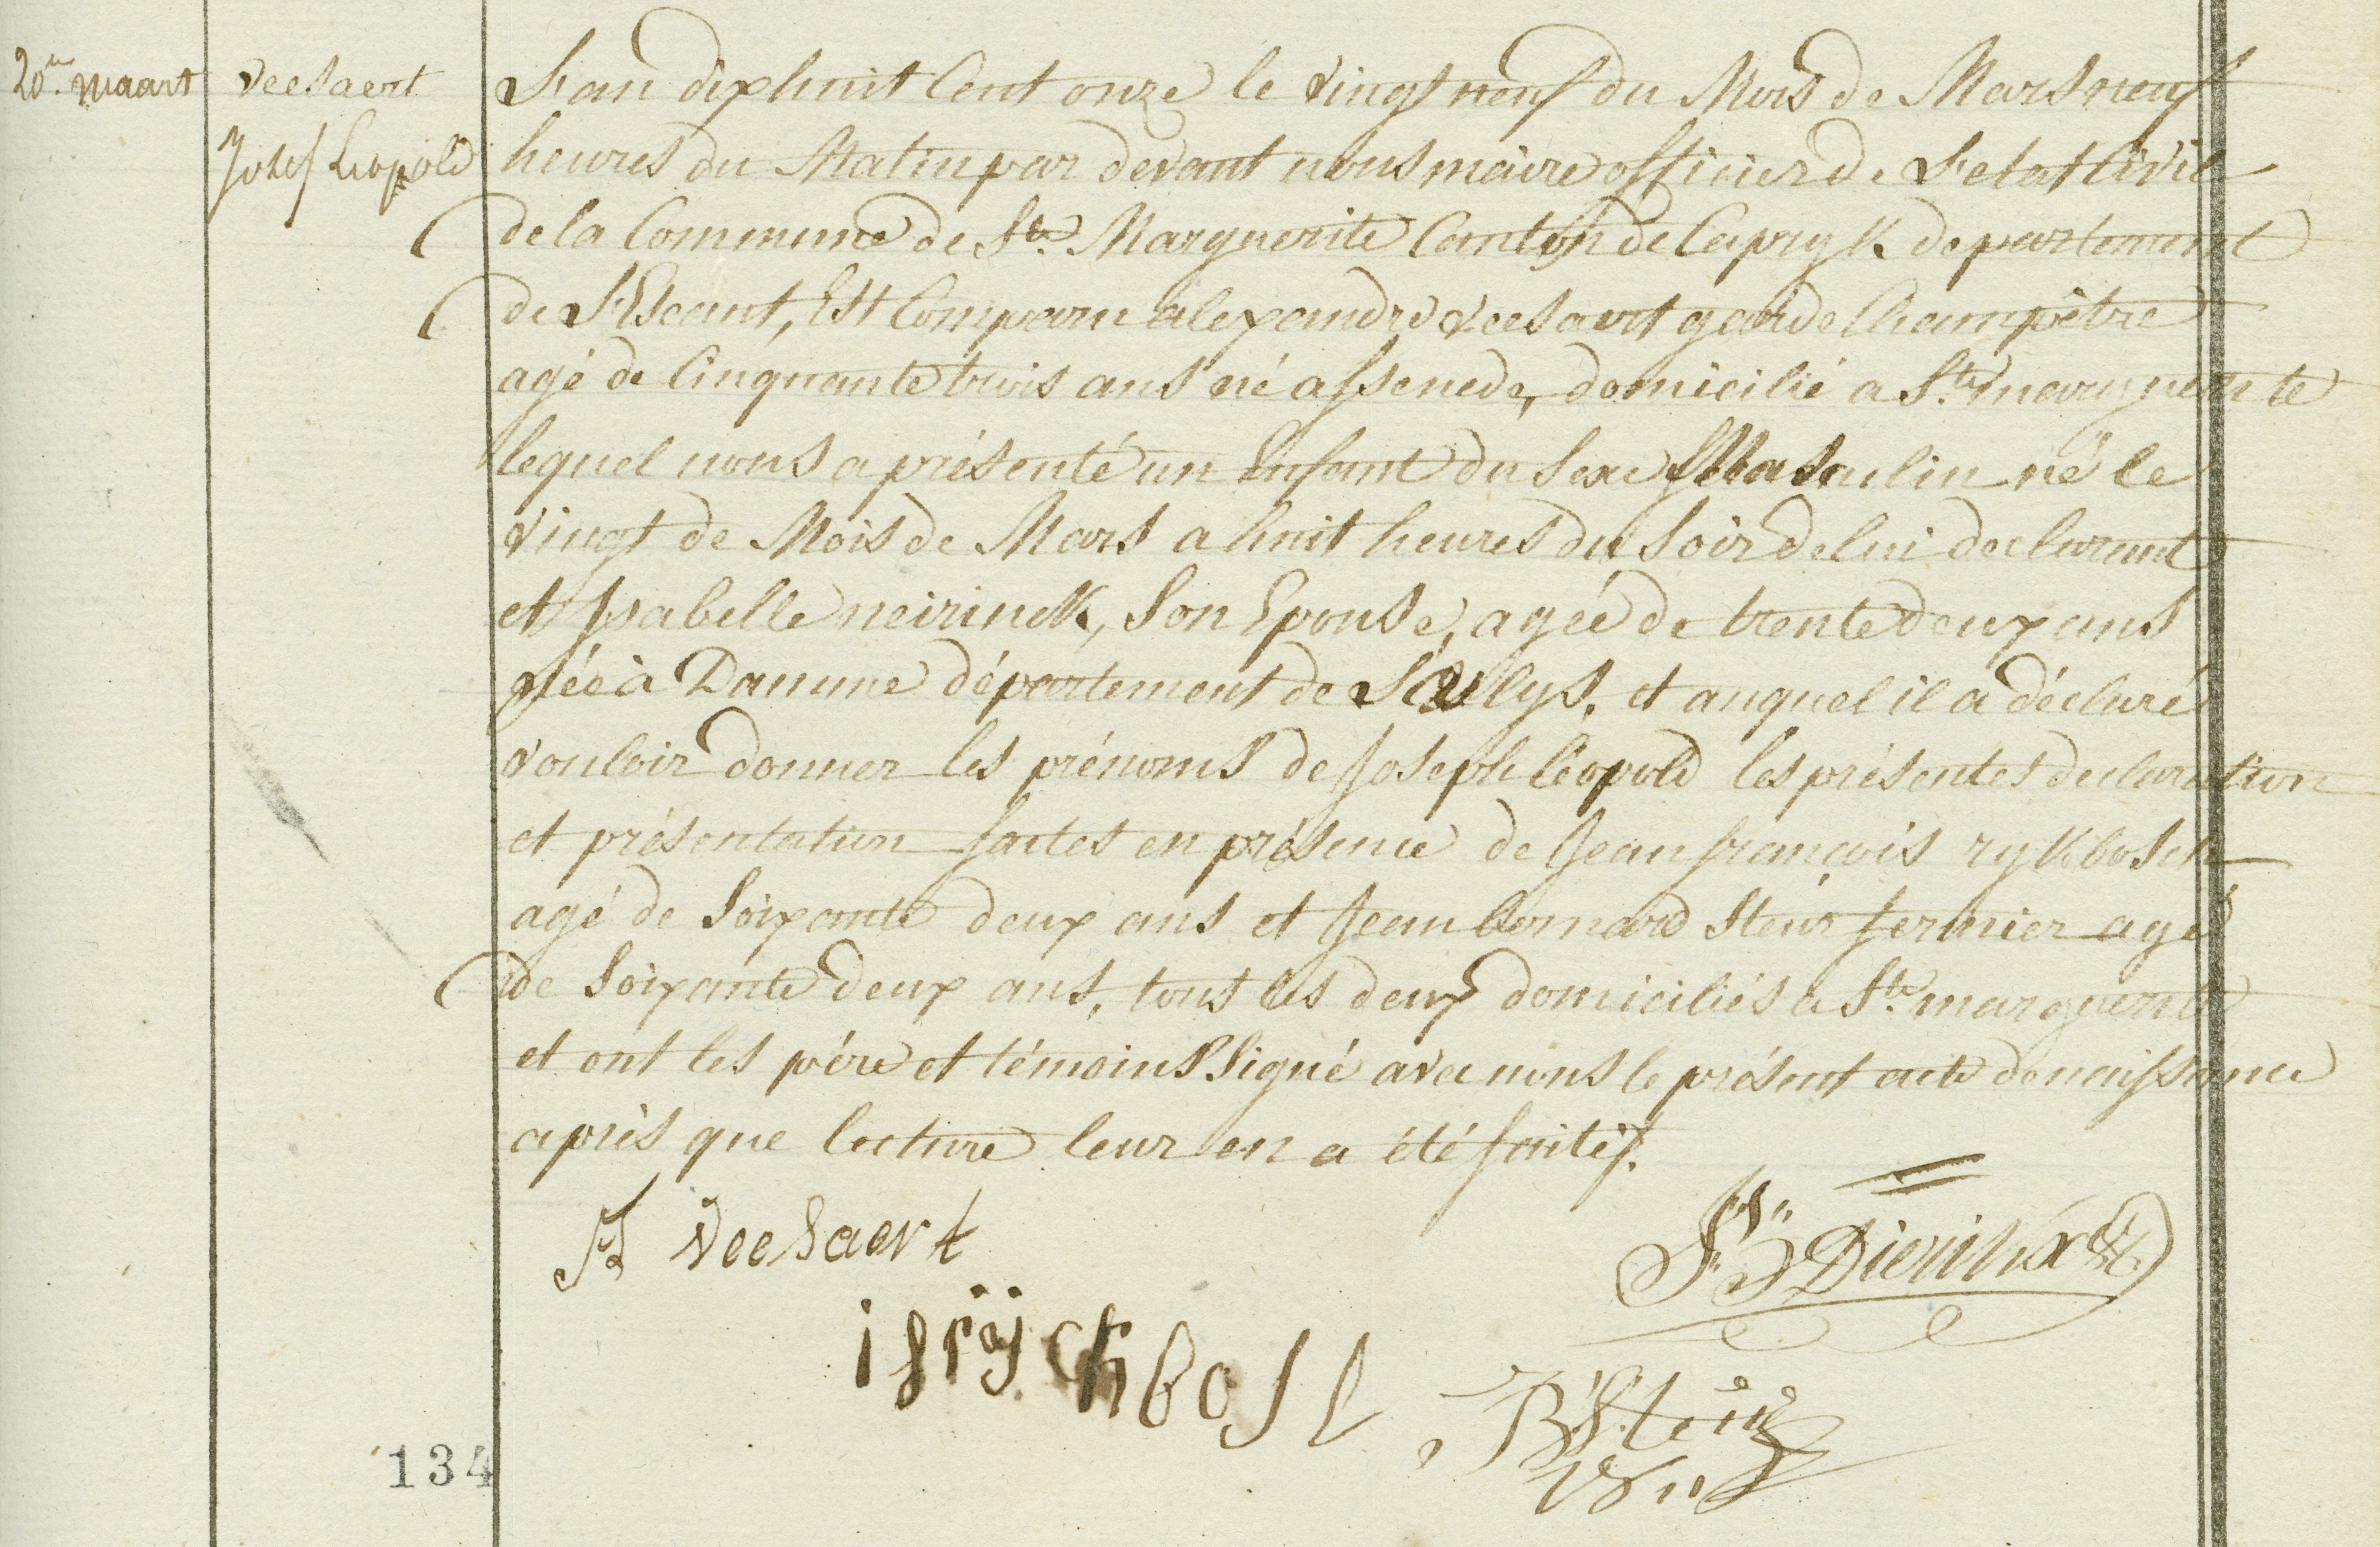 20.en maart
Veesaert
Josef Leopold
L'an dix huit Cent onze le Vingt neuf du Mois de Mars neuf
heures du Matin par devant nous maire officier de L'etat Civil
de la Commune de Ste. Marguerite Canton de Capryk departement
de L'Escaut, Est Comparu alexandre Veesaert garde Champêtre
agé de Cinquante trois ans né assenede, domicilié a Ste. marguerite
lequel nous a présenté un Enfant du Sexe Masculin né le
Vingt de Mois de Mars a huit heures du Soir de lui declarant
et Isabelle neirinck, Son Epouse, agée de trente deux ans
Née à Damme département de la lys, et auquel il a déclaré
vouloir donner les prénoms de Joseph léopold les présentes declaration
et présentation faites en présence de Jean françois rykbosch
agé de Soixante deux ans et Jean bernard Steur fermier agé
de Soixante deux ans, tous les deux domiciliés a Ste. marguerite
et ont les père et témoins Signé avec nous le présent acte de naissance
après que lecture leur en a été faite.
A Veesaert
Dierickx
rÿckbost
B Steur
134